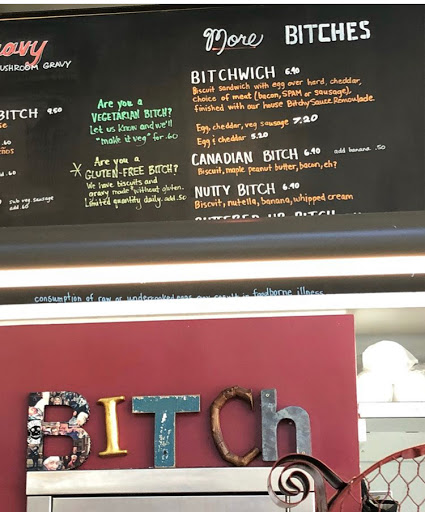 More BITCHES
BITCHWICH 6.90
Biscuit sandwich with egg over hard, cheddar,
choice of meat (bacon, SPAM or sausage),
finished with our house Bitchy Sauce Remoulade.
Egg, cheddar, veg sausage 7.20
Egg & cheddar 5.20
CANADIAN BITCH 6.90 add banana .50
Biscuit, maple peanut butter, bacon, eh?
NUTTY BITCH 6.90
Biscuit, nutella, banana, whipped cream
BUTTERED UP BITCH
avy
USHROOM GRAVY
BITCH 9.50
.60
Sub veg. sausage
add .60
Are you a
VEGETARIAN BITCH?
Let us know and we'll
"make it veg" for .60
* Are you a
GLUTEN-FREE BITCH?
We have biscuits and
gravy made without gluten.
Limited quantity daily. add .50
consumption of raw or undercooked eggs may result in foodborne illness
BITCh